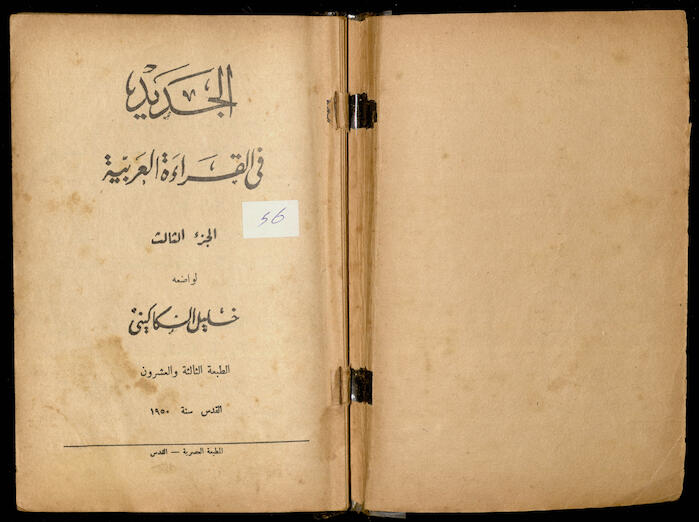 الجديد
في القراءة العربية
56
الجزء الثالث
لواضعه
خليل السكاكيني
الطبعة الثالثة والعشرون
القدس سنة ١٩٥٠
المطبعة العصرية — القدس